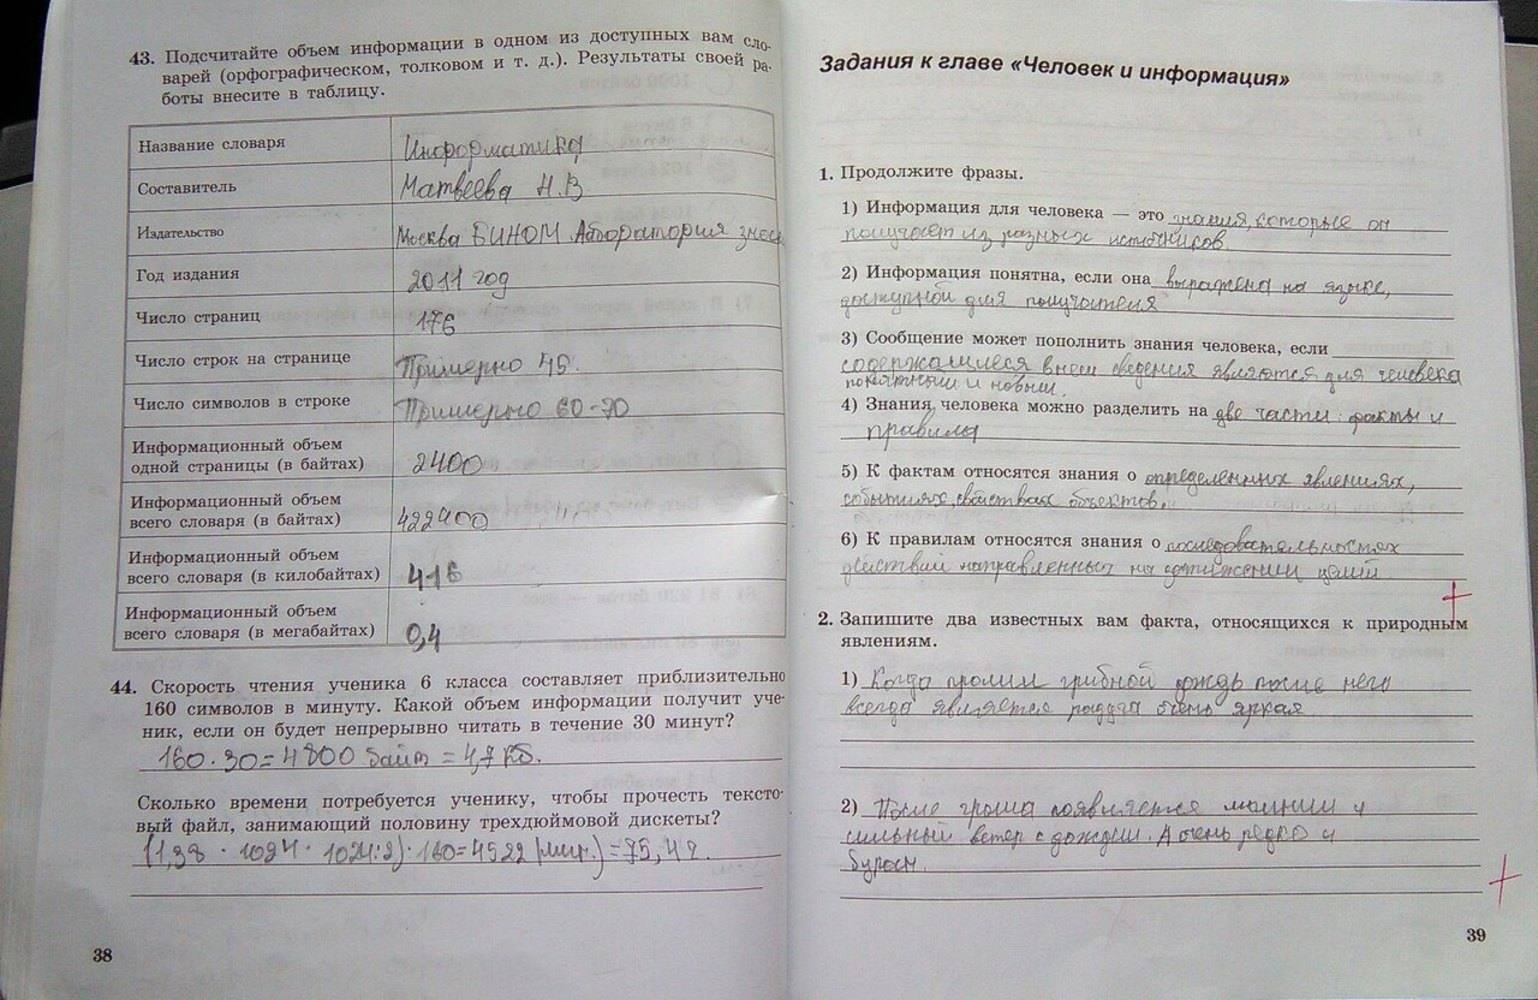 43. Подсчитайте объем информации в одном из доступных вам сло-
варей (орфографическом, толковом и т. д.). Результаты своей ра-
боты внесите в таблицу.
Название словаря Информатика
Составитель Матвеева Н.В
Издательство Москва БИНОМ Лаборатория
Год издания 2011 год
Число страниц 176
Число строк на странице Примерно 45.
Число символов в строке Примерно 60-70
Информационный объем
одной страницы (в байтах) 2400
Информационный объем
всего словаря (в байтах) 422400
Информационный объем
всего словаря (в килобайтах) 416
Информационный объем
всего словаря (в мегабайтах) 0,4
44. Скорость чтения ученика 6 класса составляет приблизительно
160 символов в минуту. Какой объем информации получит уче-
ник, если он будет непрерывно читать в течение 30 минут?
160 · 30 = 4800 байт = 4,7 Кб.
Сколько времени потребуется ученику, чтобы прочесть тексто-
вый файл, занимающий половину трехдюймовой дискеты?
(1,38 · 1024 · 1024:2):160=4522 (мин.)=75,4 ч.
38
Задания к главе «Человек и информация»
1. Продолжите фразы.
1) Информация для человека — это знания, которые он
получает из разных источников.
2) Информация понятна, если она выражена на языке,
доступной для получателя
3) Сообщение может пополнить знания человека, если
содержащиеся в нем сведения являются для человека
понятными и новыми.
4) Знания человека можно разделить на две части: факты и
правила
5) К фактам относятся знания о определенных явлениях,
событиях, свойствах объектов.
6) К правилам относятся знания о последовательностях
действий направленных на достижении целий.
2. Запишите два известных вам факта, относящихся к природным
явлениям.
1) Когда пролил грибной дождь после него
всегда является радуга очень яркая
2) После грома появляется молнии и
сильный ветер с дождем. А очень редко и
39